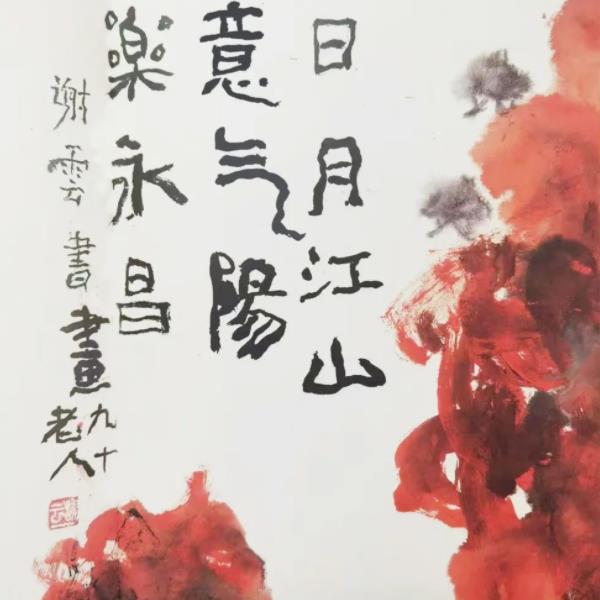 日月江山
意气陽
樂永昌
谢雲書畫
九十
老人